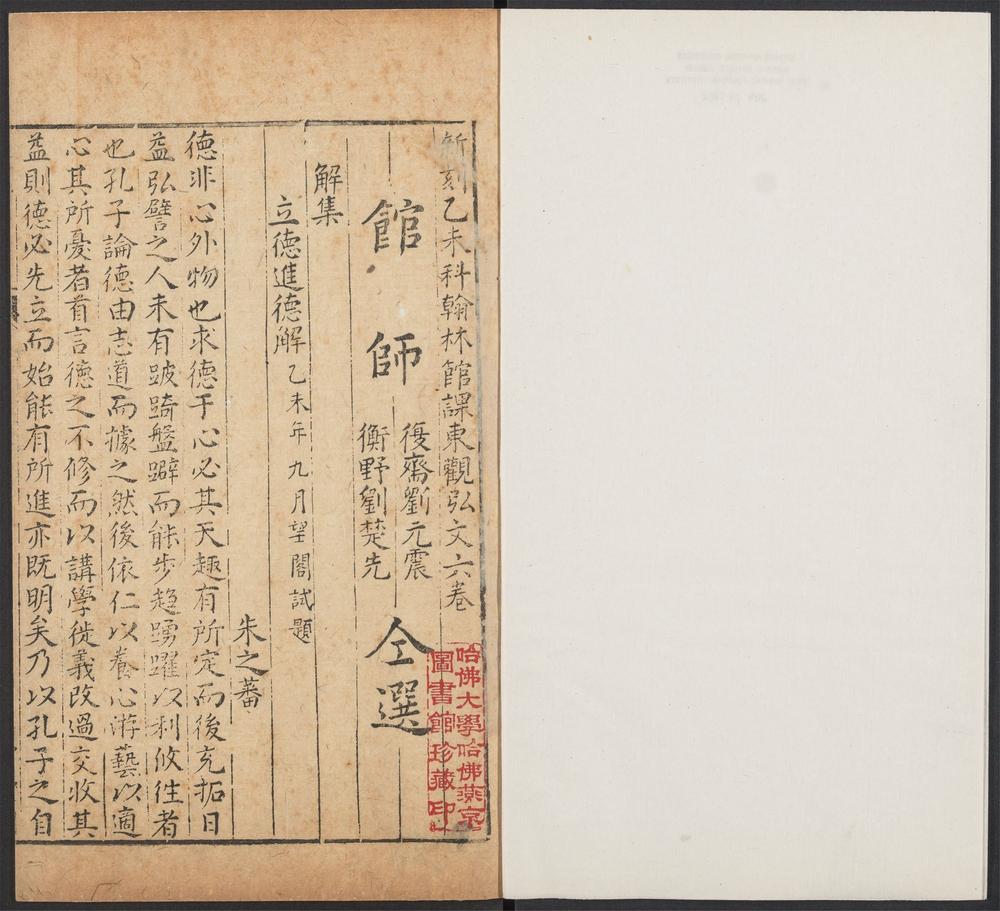 新刻乙未科翰林館課東觀弘文六卷
館師
復齋劉元震
衡野劉楚先
仝選
解集
立德進德解乙未年九月望閣試題
朱之蕃
德非心外物也求德于心必其天趣有所定而後充拓日
益弘譬之人未有跛踦盤躃而能步趋踴躍以利攸往者
也孔子論德由志道而據之然後依仁以養心游藝以適
心其所憂者首言德之不修而以講學徙義改過交收其
益則德必先立而始能有所進亦既明矣乃以孔子之自
哈佛大學哈佛燕京
圖書館珍藏印